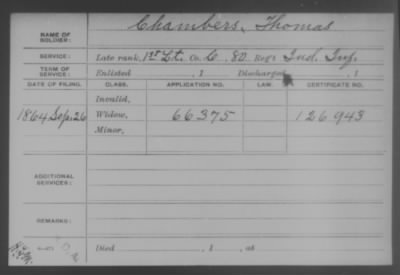 NAME OF SOLDIER: Chambers, Thomas
SERVICE: Late rank, 1st Lt, Co. C, 80 Reg't Ind. Inf.
TERM OF SERVICE: Enlisted , 1 Discharged , 1
DATE OF FILING. CLASS. APPLICATION NO. LAW. CERTIFICATE NO.
Invalid,
1864 Sep. 26 Widow, 66375 126943
Minor,
ADDITIONAL SERVICES:
REMARKS:
Died , 1 , at